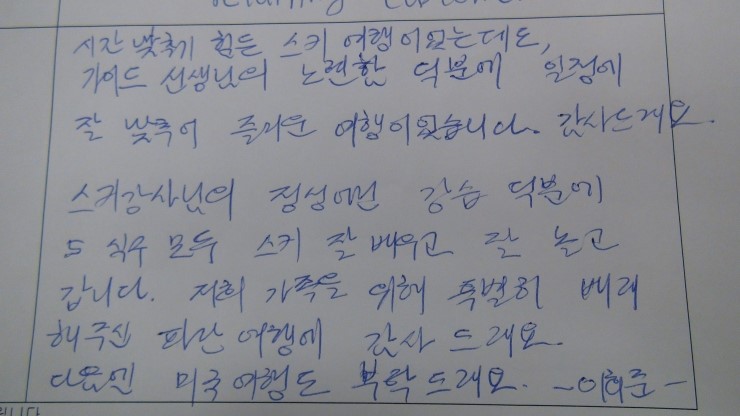 시간 맞추기 힘든 스키 여행이었는데도,
가이드 선생님의 노련한 덕분에 일정에
잘 맞추어 즐거운 여행이었습니다. 감사드려요.
스키강사님의 정성어린 강습 덕분에
5 식구 모두 스키 잘 배우고 잘 놀고
갑니다. 저희 가족을 위해 특별히 배려
해주신 파란여행에 감사 드려요.
다음엔 미국여행도 부탁드려요. -이희준-